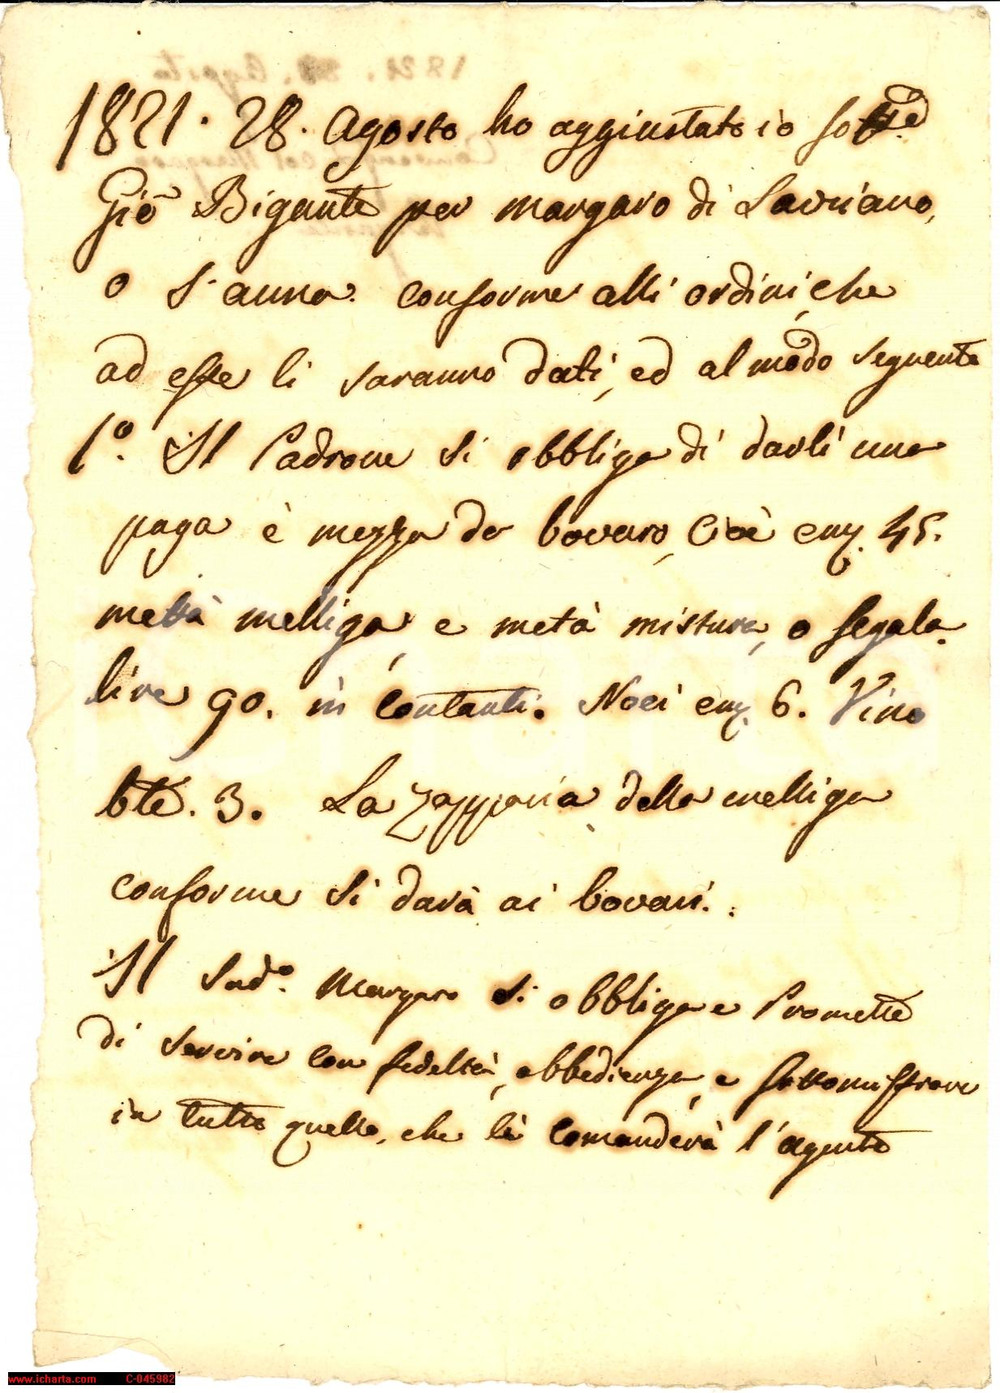 1821. 28. Agosto ho aggiustato io sott.
Giõ Bigante per margaro di Lauriano,
o S. anna. conforme alli ordini, che
ad esse li saranno dati, ed al modo seguente
1º. Il Padrone si obbliga di darli una
paga è mezza da bovaro, Cioè emj. 45.
mettà melliga, e metà mistura, o segala.
lire 90. in contanti. Noci emj. 6. Vino
bte. 3. La zapparia della melliga
conforme si darà ai bovari.
Il Sudº. Margaro si obbliga e Promette
di servire con fedeltà, obbedienza, e sottomissione
in tutto quello, che li comanderà l'agente
www.icharta.com C-045982